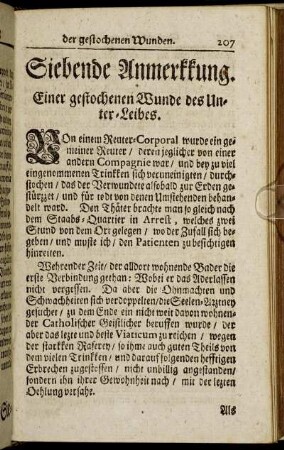 der gestochenen Wunden. 207
Siebende Anmerkkung.
Einer gestochenen Wunde des Un-
ter-Leibes.
VOn einem Reuter-Corporal wurde ein ge-
meiner Reuter / deren jeglicher von einer
andern Compagnie war / und bey zu viel
eingenommenen Trinkken sich veruneinigten / durch-
stochen / das der Verwundete alsobald zur Erden ge-
stürzet / und für todt von denen Umstehenden behan-
delt ward. Den Thäter brachte man so gleich nach
dem Staabs-Quartier in Arrest, welches zwei
Stund von dem Ort gelegen / wo der Zufall sich be-
geben / und muste ich / den Patienten zu besichtigen
hinreiten.
Wehrender Zeit / der alldort wohnende Bader die
erste Verbindung gethan: Wobei er das Aderlassen
nicht vergessen. Da aber die Ohnmachten und
Schwachheiten sich verdoppelten / die Seelen-Artzney
gesuchet / zu dem Ende ein nicht weit davon wohnen-
der Catholischer Geistlicher beruffen wurde / der
aber das letzte und beste Viaticum zu reichen / wegen
der starkken Raserey / so ihme auch guten Theils von
dem vielen Trinkken / und darauf folgenden hefftigen
Erbrechen zugestossen / nicht unbillig angestanden /
sondern ihn ihrer Gewohnheit nach / mit der letzten
Oehlung versahe.
Als